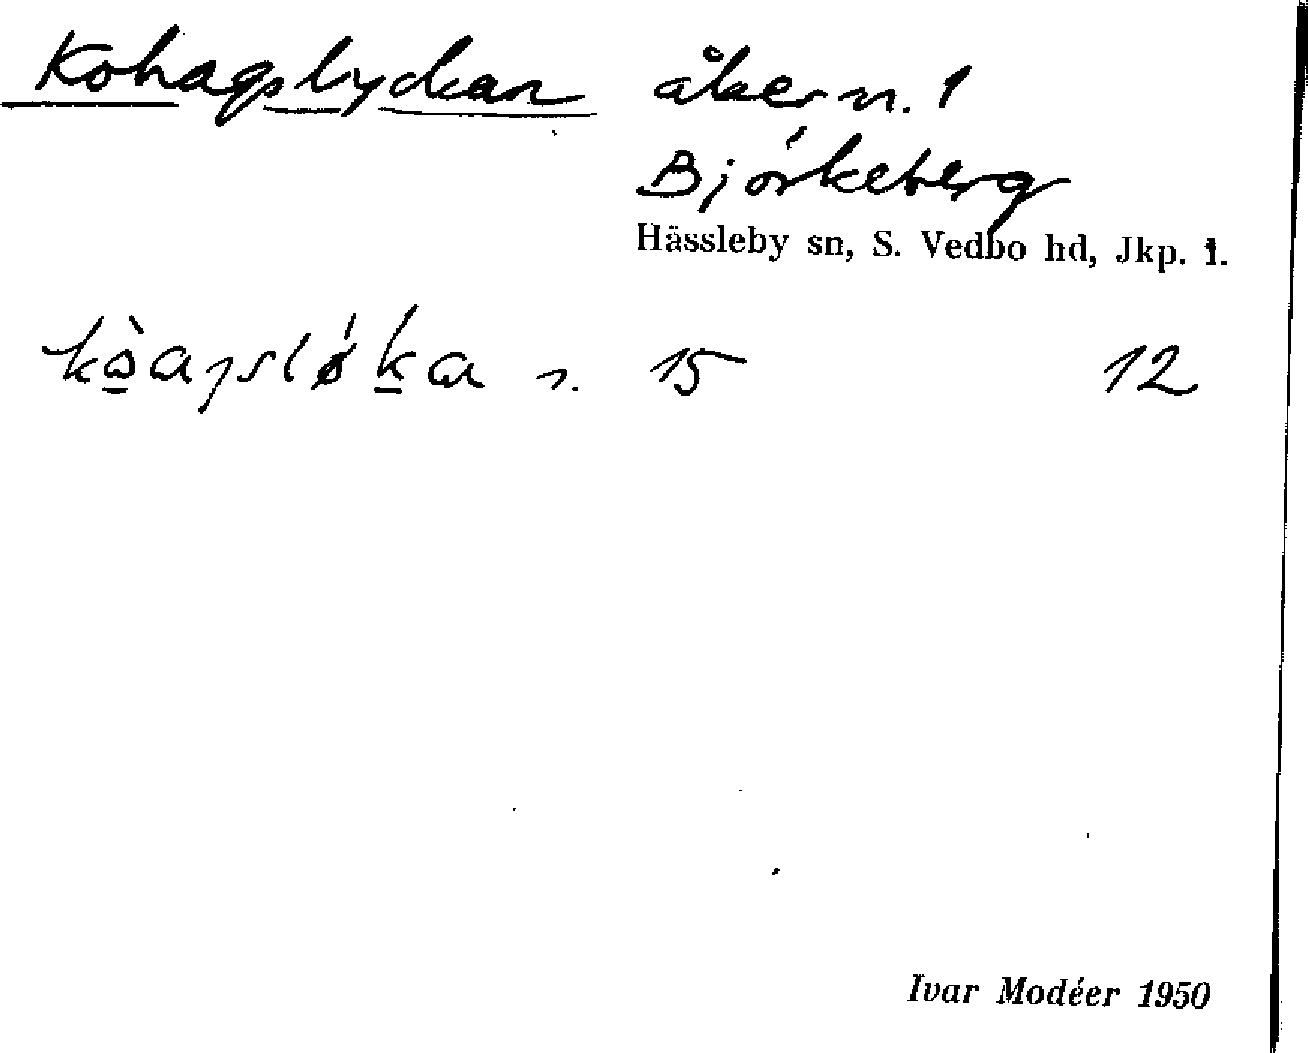 Kohagslyckan åker n. 1
Björkeberg
Hässleby sn, S. Vedbo hd, Jkp. l.
15 12
Ivar Modéer 1950